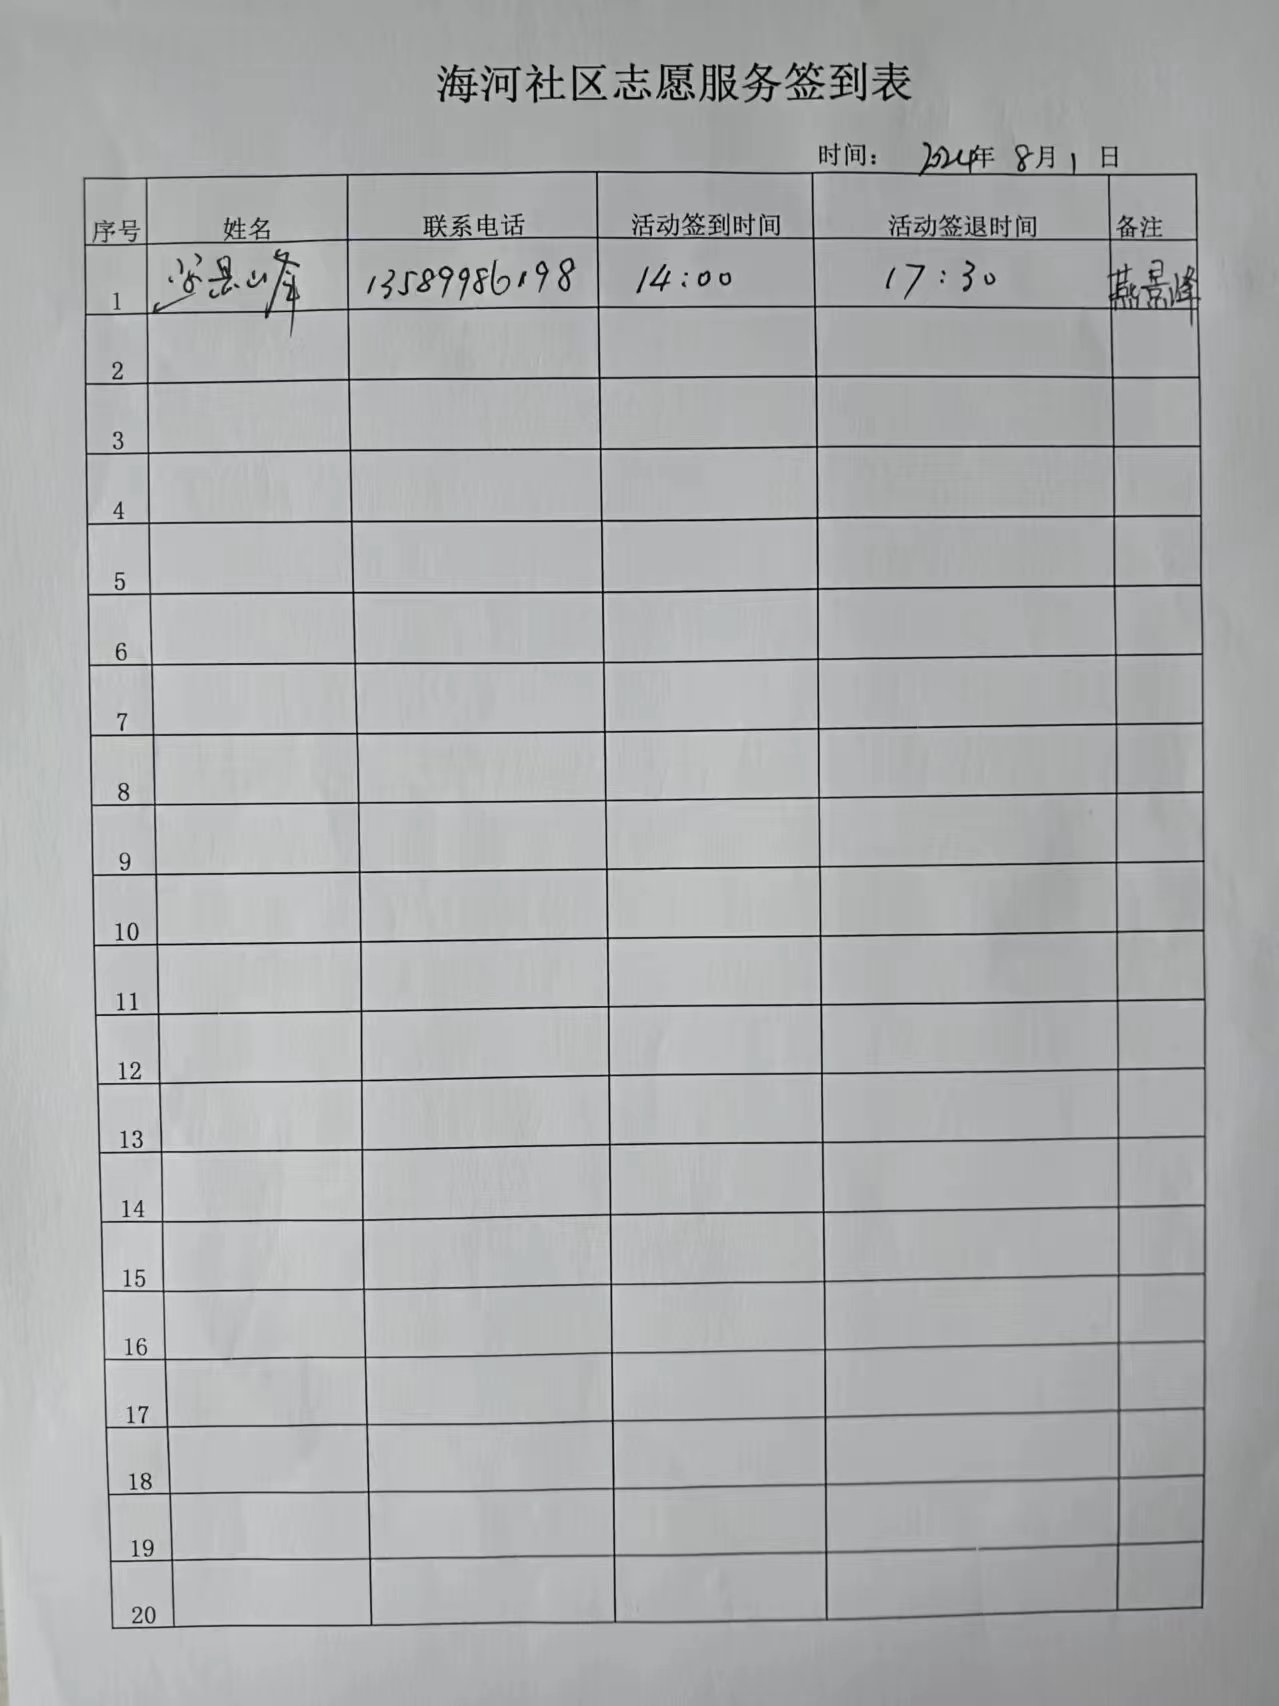 海河社区志愿服务签到表
时间： 2024年 8月1日
序号 姓名 联系电话 活动签到时间 活动签退时间 备注
1 13589986198 14:00 17:30 燕景峰
2
3
4
5
6
7
8
9
10
11
12
13
14
15
16
17
18
19
20